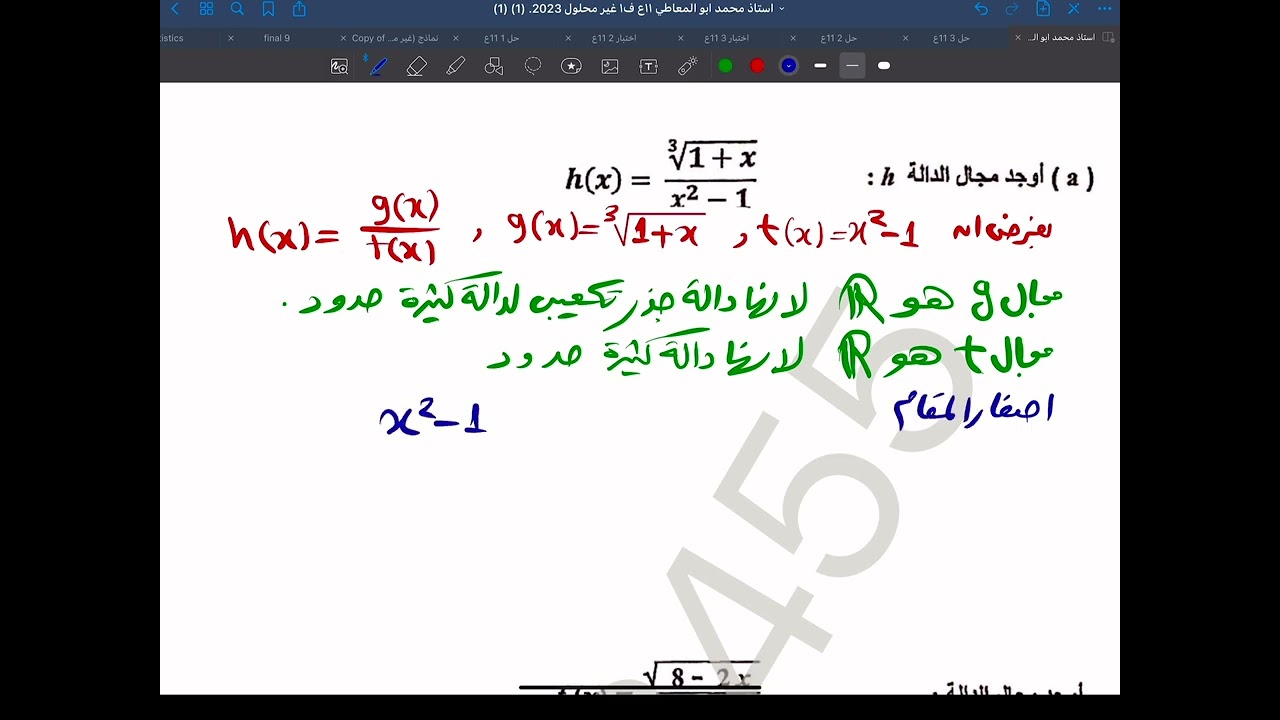 استاذ محمد ابو المعاطي ١١ع ف١ غير محلول 2023. (1) (1)
tistics
final 9
Copy of نماذج (غير مـ...
حل 1 11ع
اختبار 2 11ع
اختبار 3 11ع
حل 2 11ع
حل 3 11ع
استاذ محمد ابو الـ...
( a ) أوجد مجال الدالة h :
h(x) = ∛(1 + x) / (x² − 1)
بفرض ان h(x) = g(x)/t(x) , g(x) = ∛(1+x) , t(x) = x²−1
مجال g هو ℝ لانها دالة جذر تكعيب لدالة كثيرة حدود .
مجال t هو ℝ لانها دالة كثيرة حدود
اصفار المقام x²−1
455
√(8 − 2x)
أوجد مجال الدالة